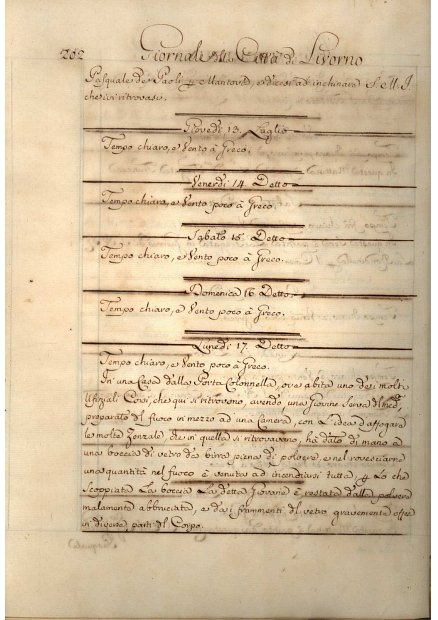 202 Giornale della Città di Livorno
Pasquale de Paoli p Mantova, e dicesi ad inchinare S. M. I.
che ivi ritrovasi.
Giovedi 13. Luglio
Tempo chiaro, e Vento à Greco.
Venerdi 14. Detto
Tempo chiaro, e Vento poco à Greco.
Sabato 15. Detto
Tempo chiaro, e Vento poco à Greco.
Domenica 16. Detto.
Tempo chiaro, e Vento poco à Greco.
Lunedi 17. Detto
Tempo chiaro, e Vento poco à Greco.
In una Casa dalla Porta Colonnella, ove abita uno dei molti
Ufiziali Corsi, che qui si ritrovono, avendo, una Giovine Serva di
preparato del fuoco in mezzo ad una Camera, con L'idea d'affogare
le molte Zanzale, che in quella si ritrovavano, ha dato di mano a
una boccia di vetro da birra piena di polvere, e nel rovesciarne
una quantità nel fuoco è venuta ad incendiarsi tutta, p Lo che
scoppiata La boccia La detta Giovane è restata dalla polvere
malamente abbruciata, e da i frammenti del vetro gravemente offesa
in diverse parti del Corpo.